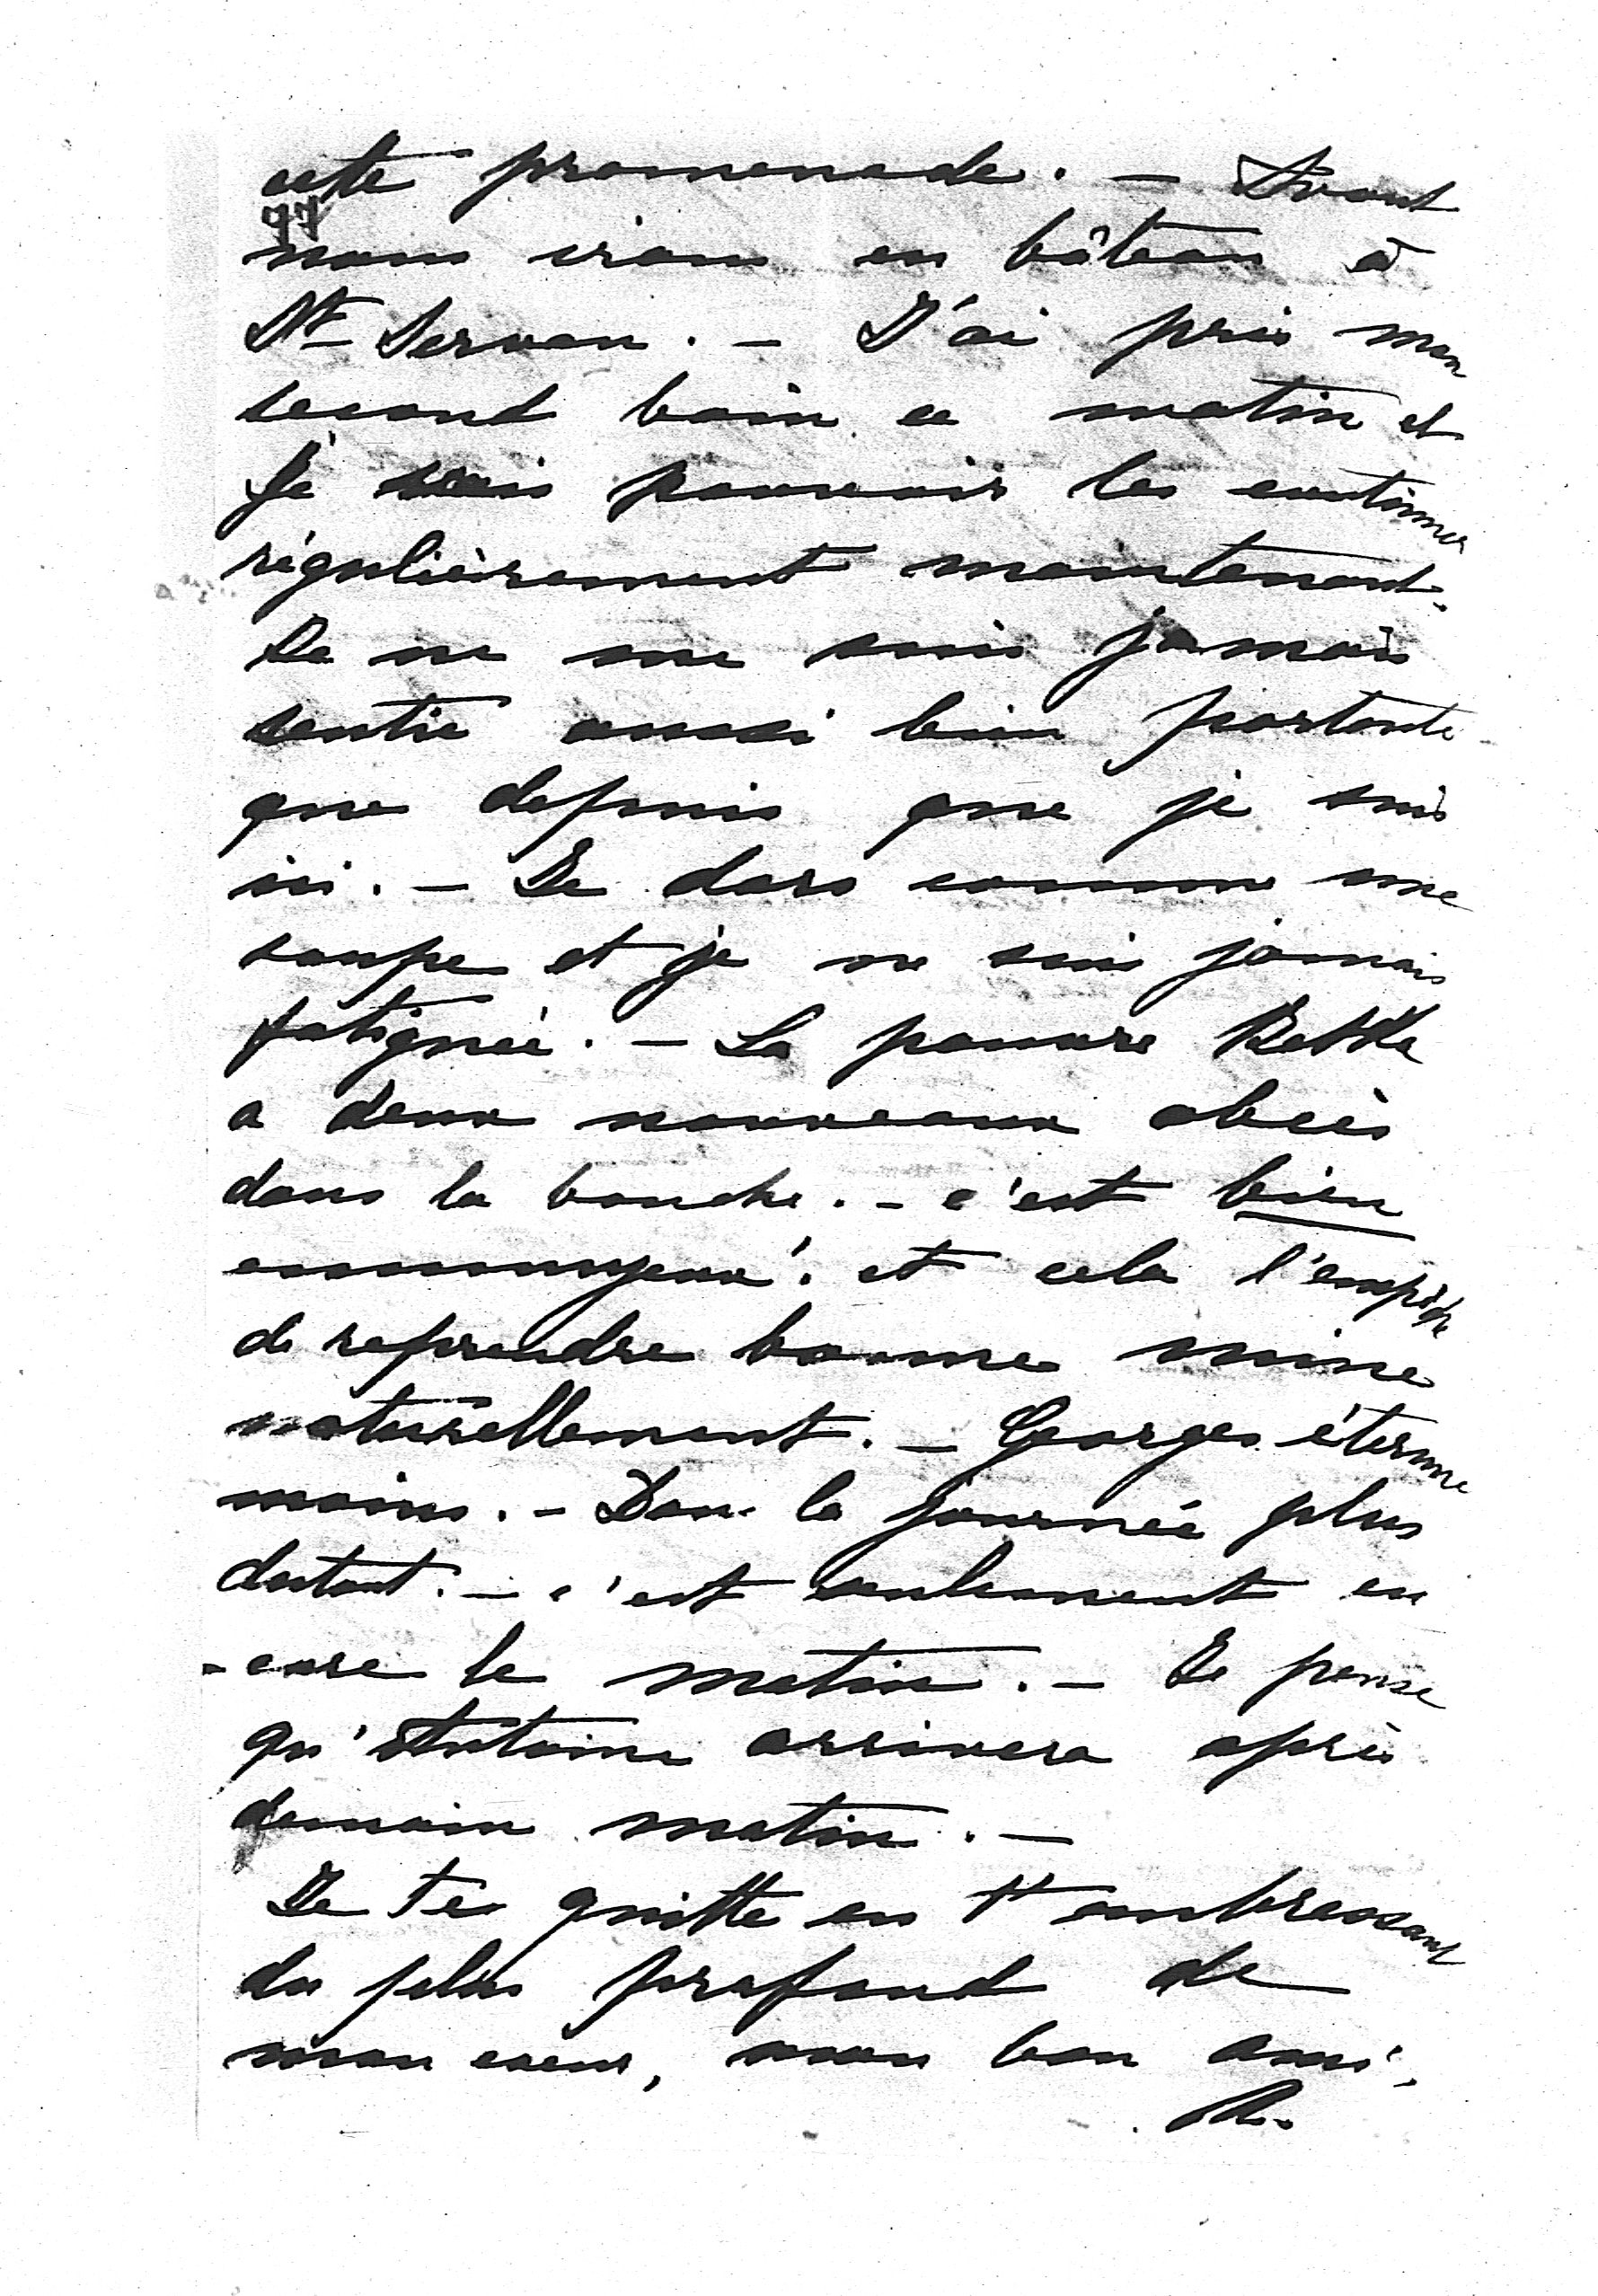 cette promenade. — Avant
77
nous irons en bâteau à
St Servan. — J'ai pris mon
second bain ce matin et
je vais pouvoir les continuer
régulièrement maintenant.
Je ne me suis jamais
sentie aussi bien portante
que depuis que je suis
ici. — Je dors comme une
soupe et je ne suis jamais
fatiguée. — La pauvre
a deux nouveaux abcès
dans la bouche. - c'est bien
ennuyeux. et cela l'empêche
de reprendre bonne mine
naturellement. — Georges éternue
moins. - Dans la journée plus
du tout. — c'est seulement en
-core le matin. — Je pense
qu'Antoine arrivera après
demain matin. —
Je te quitte en t'embrassant
du plus profond de
mon cœur, mon bon ami,